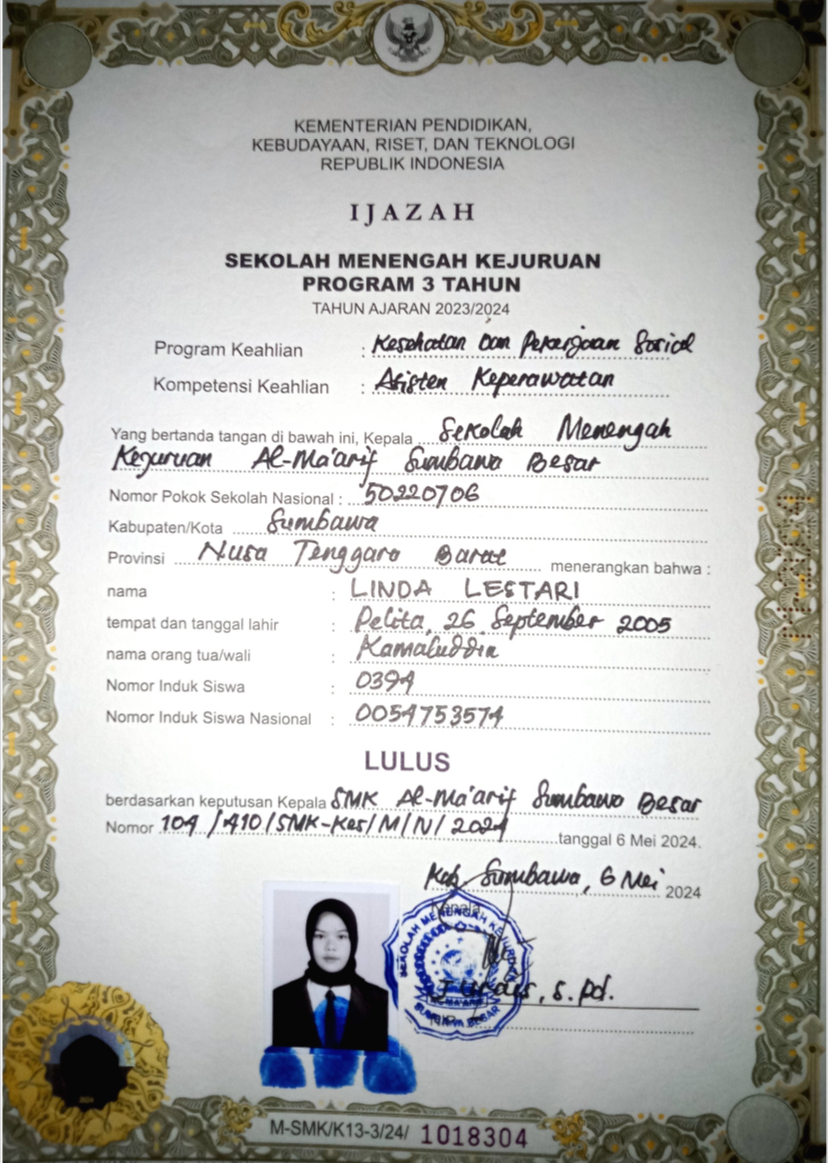 KEMENTERIAN PENDIDIKAN,
KEBUDAYAAN, RISET, DAN TEKNOLOGI
REPUBLIK INDONESIA
IJAZAH
SEKOLAH MENENGAH KEJURUAN
PROGRAM 3 TAHUN
TAHUN AJARAN 2023/2024
Program Keahlian : Kesehatan Dan Pekerjaan Sosial
Kompetensi Keahlian : Asisten Keperawatan
Yang bertanda tangan di bawah ini, Kepala Sekolah Menengah
Kejuruan Al-Ma'arif Sumbawa Besar
Nomor Pokok Sekolah Nasional : 50220706
Kabupaten/Kota Sumbawa
Provinsi Nusa Tenggara Barat menerangkan bahwa :
nama : LINDA LESTARI
tempat dan tanggal lahir : Pelita, 26 September 2005
nama orang tua/wali : Kamaluddin
Nomor Induk Siswa : 0394
Nomor Induk Siswa Nasional : 0054753574
LULUS
berdasarkan keputusan Kepala SMK Al-Ma'arif Sumbawa Besar
Nomor 104 /410/SMK-Kes/M/N/ 2024 tanggal 6 Mei 2024.
Kab. Sumbawa, 6 Mei 2024
Kepala
SEKOLAH MENENGAH KEJURUAN
SUMBAWA BESAR
S.Pd.
M-SMK/K13-3/24/ 1018304